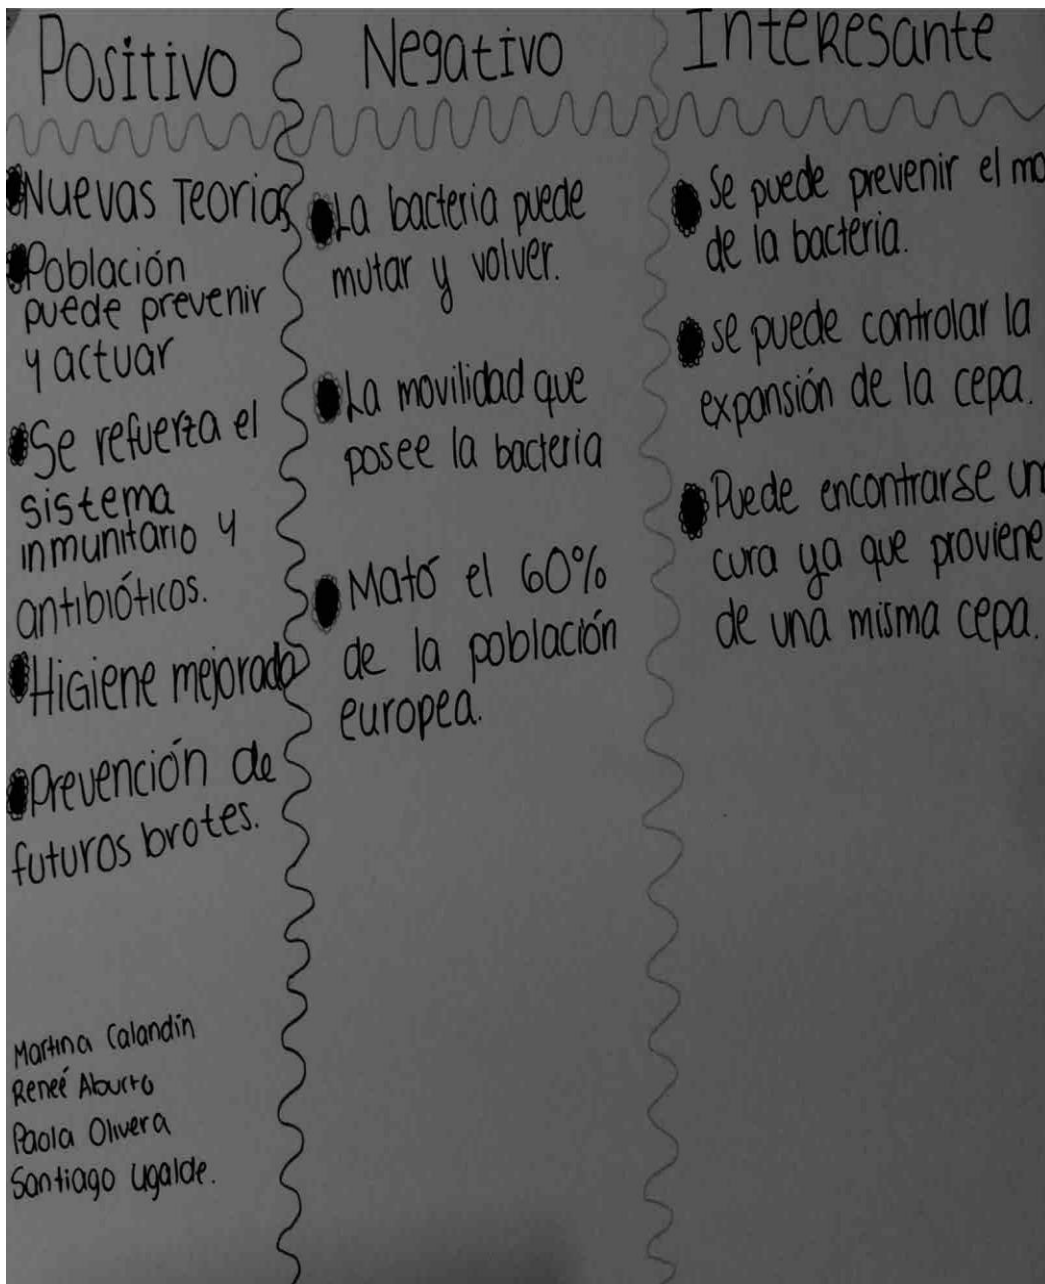 Positivo
Nuevas Teorias
Población
puede prevenir
y actuar
Se refuerza el
sistema
inmunitario y
antibióticos.
Higiene mejorada
Prevención de
futuros brotes.
Martina Calandín
Reneé Aburto
Paola Olivera
Santiago Ugalde.
Negativo
La bacteria puede
mutar y volver.
La movilidad que
posee la bacteria
Mató el 60%
de la población
europea.
Interesante
Se puede prevenir el
de la bacteria.
se puede controlar la
expansión de la cepa.
Puede encontrarse
cura ya que proviene
de una misma cepa.